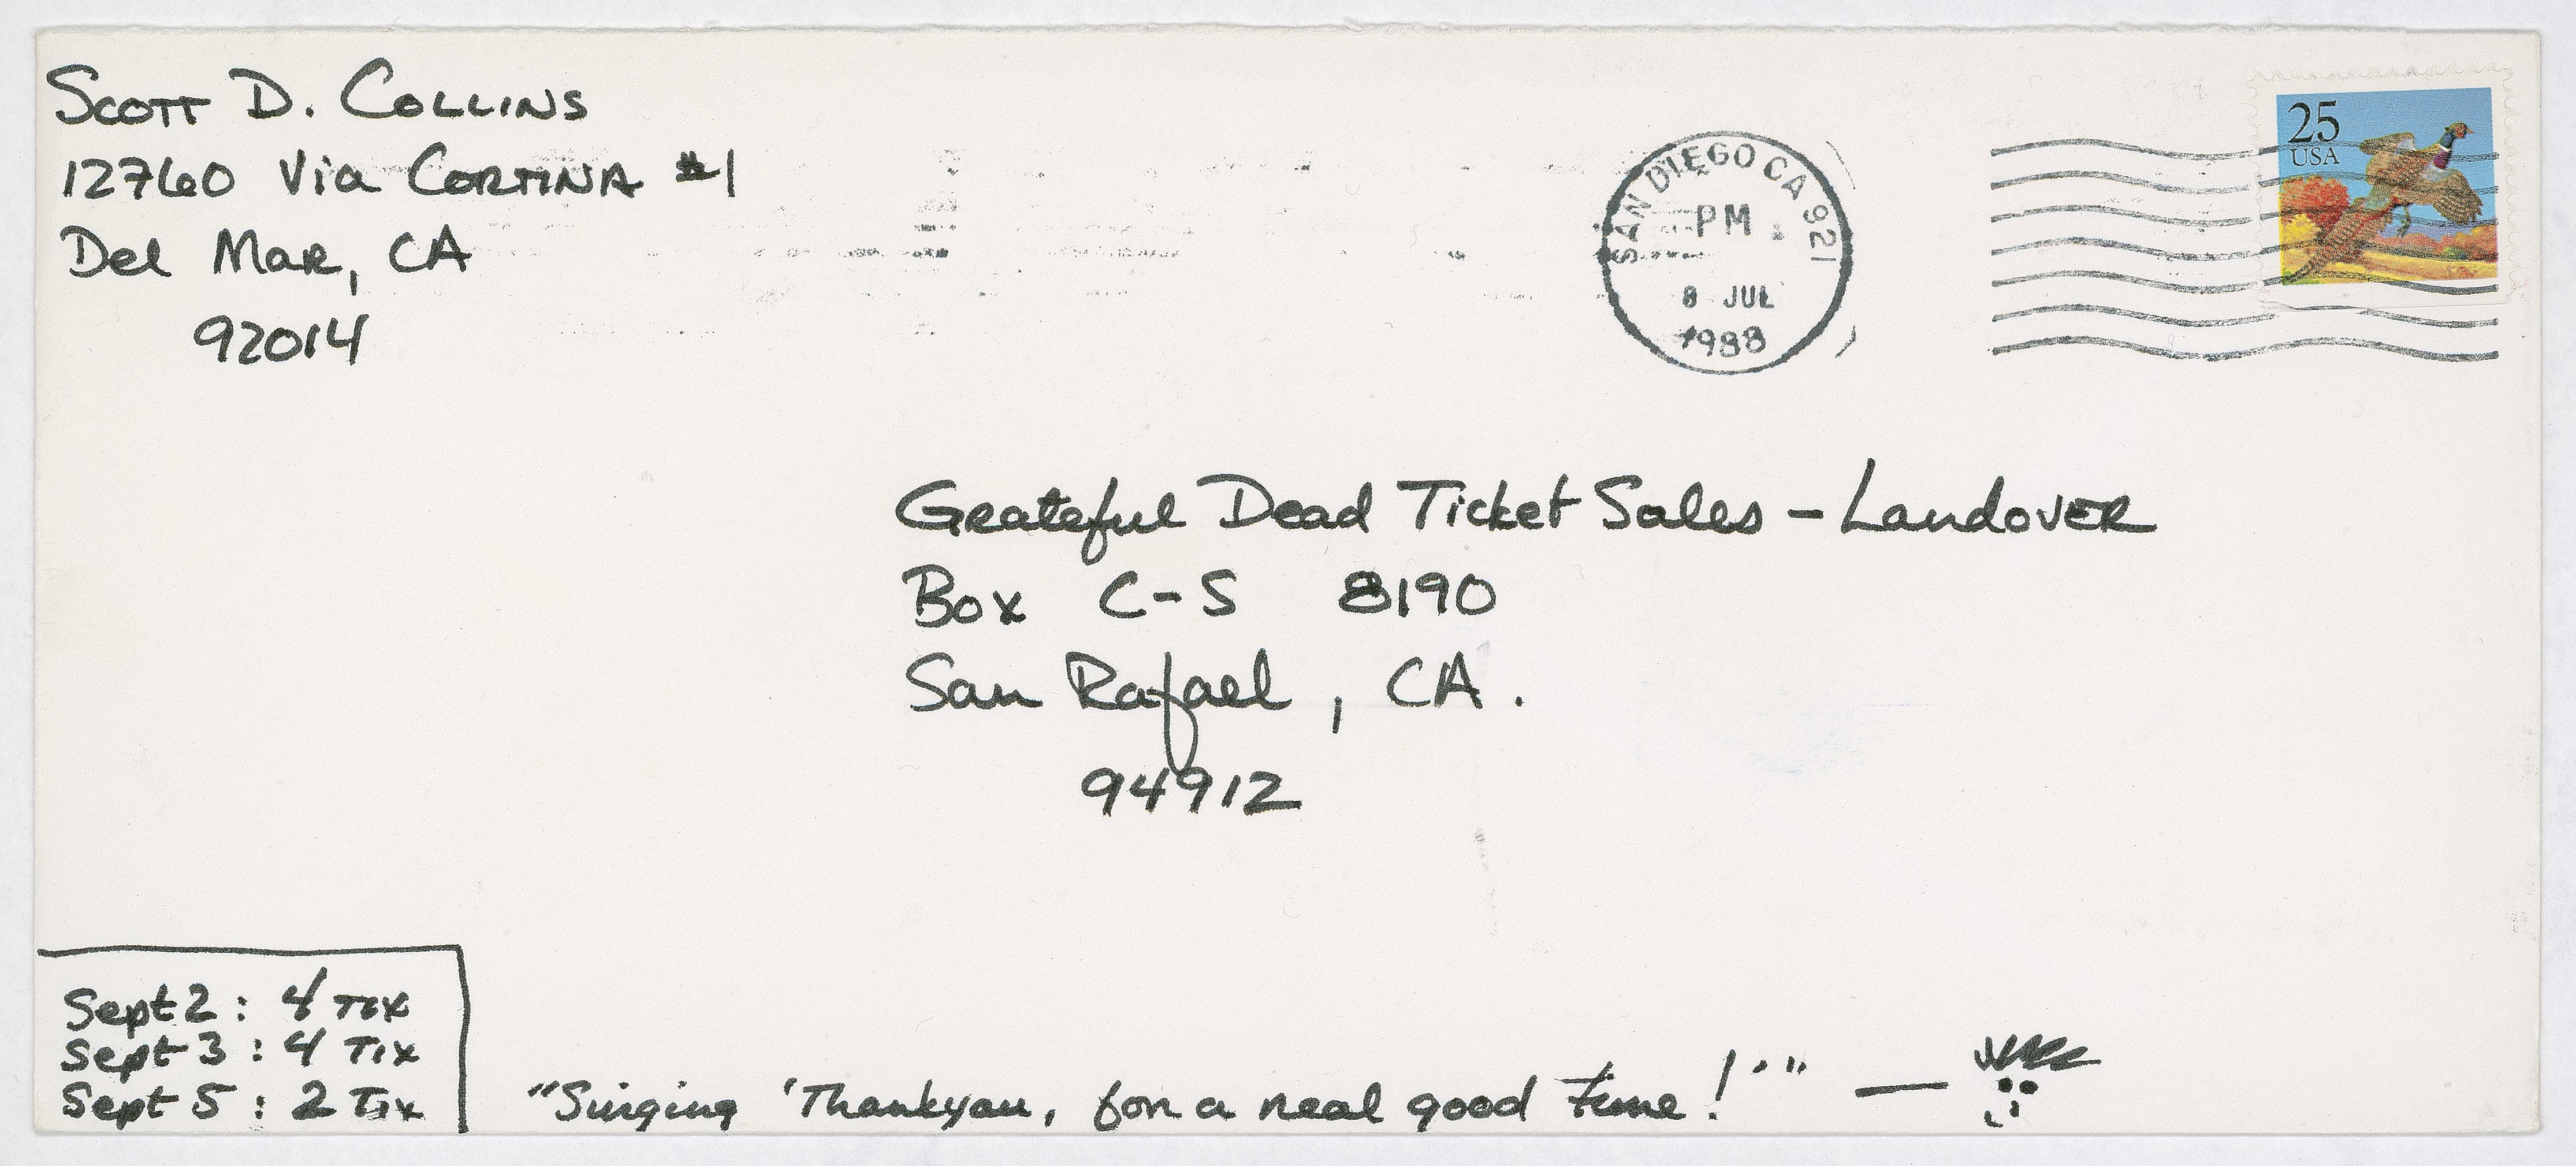 Scott D. Collins
12760 Via Cortina #1
Del Mar, CA
92014
SAN DIEGO CA 921
PM
8 JUL
1988
25
USA
Grateful Dead Ticket Sales - Landover
Box C-S 8190
San Rafael, CA.
94912
Sept 2: 4 Tix
Sept 3: 4 Tix
Sept 5: 2 Tix
"Singing 'Thankyou, for a real good time!'" —